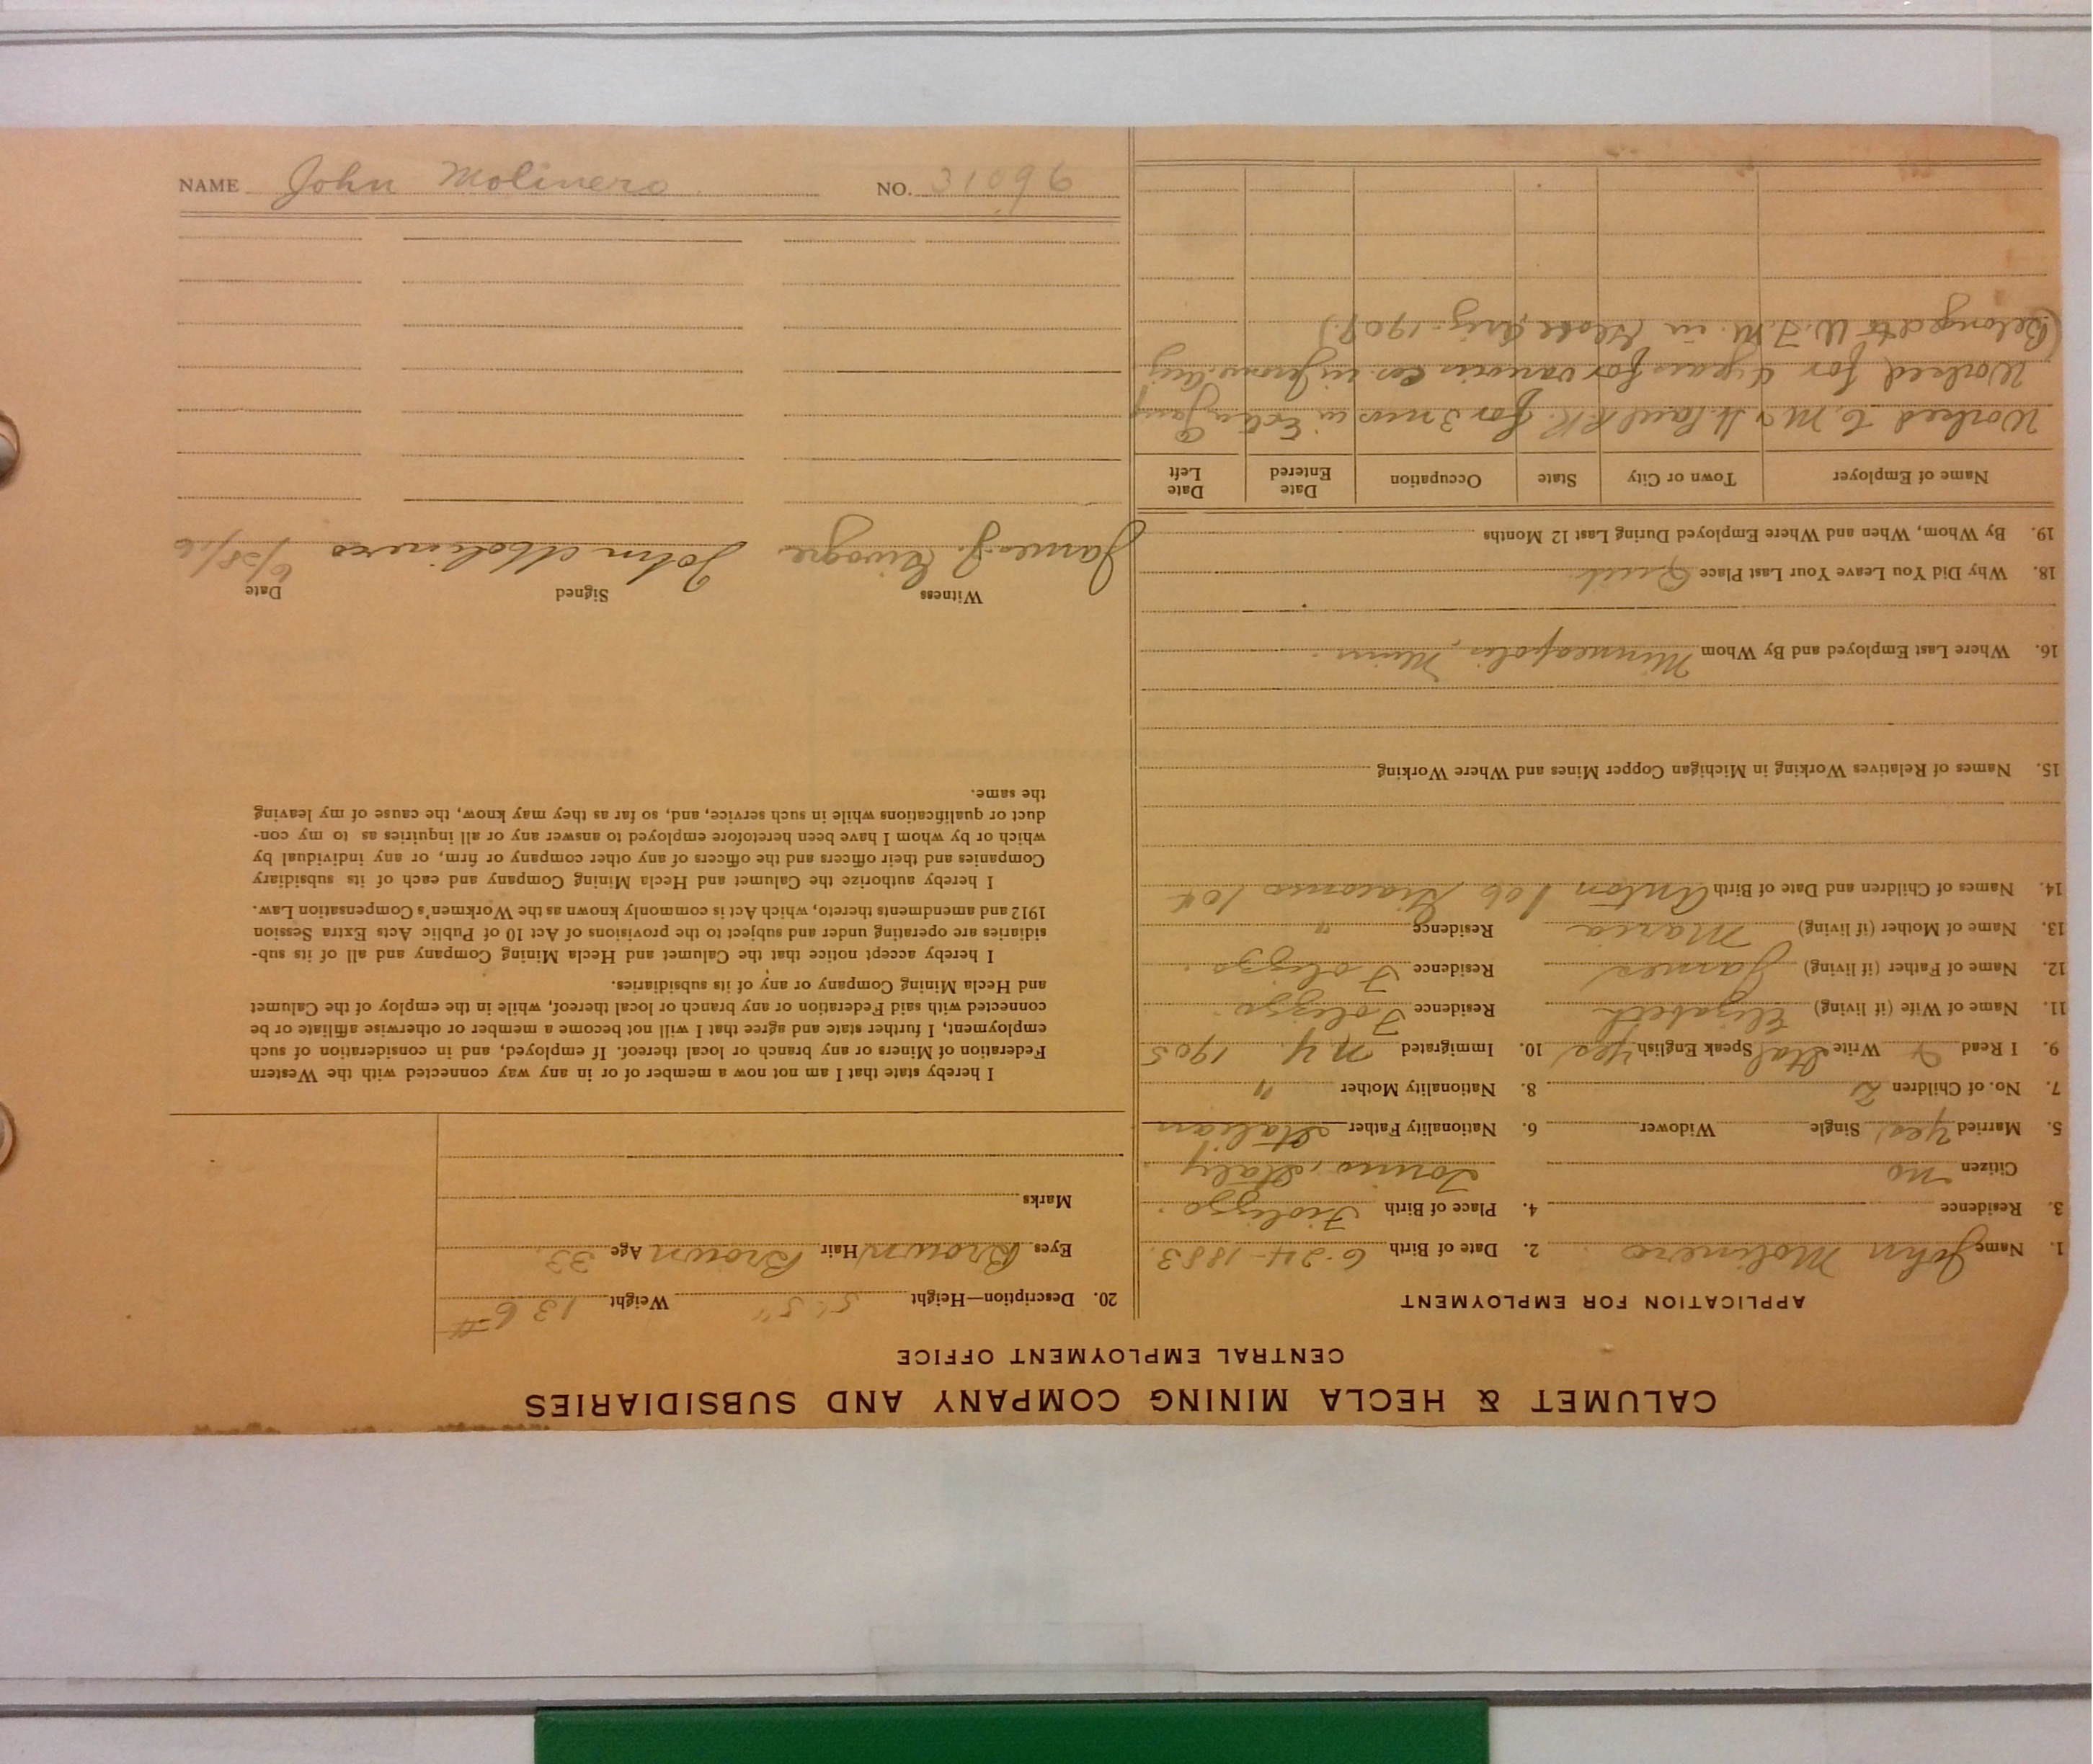 CALUMET & HECLA MINING COMPANY AND SUBSIDIARIES
CENTRAL EMPLOYMENT OFFICE
APPLICATION FOR EMPLOYMENT
1. Name John Molinero 2. Date of Birth 6-24-1883.
3. Residence 4. Place of Birth
Citizen no Italy
5. Married Yes Single Widower 6. Nationality Father Italian
7. No. of Children 2 8. Nationality Mother "
9. I Read Write Ital Speak English Yes 10. Immigrated N.Y. 1905
11. Name of Wife (if living) Elizabeth Residence
12. Name of Father (if living) James Residence
13. Name of Mother (if living) Maria Residence "
14. Names of Children and Date of Birth Anton
15. Names of Relatives Working in Michigan Copper Mines and Where Working
16. Where Last Employed and By Whom Minneapolis, Minn.
18. Why Did You Leave Your Last Place Quit
19. By Whom, When and Where Employed During Last 12 Months
Name of Employer Town or City State Occupation Date Entered Date Left
Worked C. M. & St. Paul R.R. for 3 mos in Extra Gang
Worked for 4 years for various cos. in
(Belonged to W.F.M. in Globe, Ariz. 1909.)
20. Description—Height 5' 5" Weight 136 #
Eyes Brown Hair Brown Age 33.
Marks
I hereby state that I am not now a member of or in any way connected with the Western
Federation of Miners or any branch or local thereof. If employed, and in consideration of such
employment, I further state and agree that I will not become a member or otherwise affiliate or be
connected with said Federation or any branch or local thereof, while in the employ of the Calumet
and Hecla Mining Company or any of its subsidiaries.
I hereby accept notice that the Calumet and Hecla Mining Company and all of its sub-
sidiaries are operating under and subject to the provisions of Act 10 of Public Acts Extra Session
1912 and amendments thereto, which Act is commonly known as the Workmen's Compensation Law.
I hereby authorize the Calumet and Hecla Mining Company and each of its subsidiary
Companies and their officers and the officers of any other company or firm, or any individual by
which or by whom I have been heretofore employed to answer any or all inquiries as to my con-
duct or qualifications while in such service, and, so far as they may know, the cause of my leaving
the same.
Witness Signed Date
James J. John Molinero 6/28/16
NAME John Molinero. NO. 31096